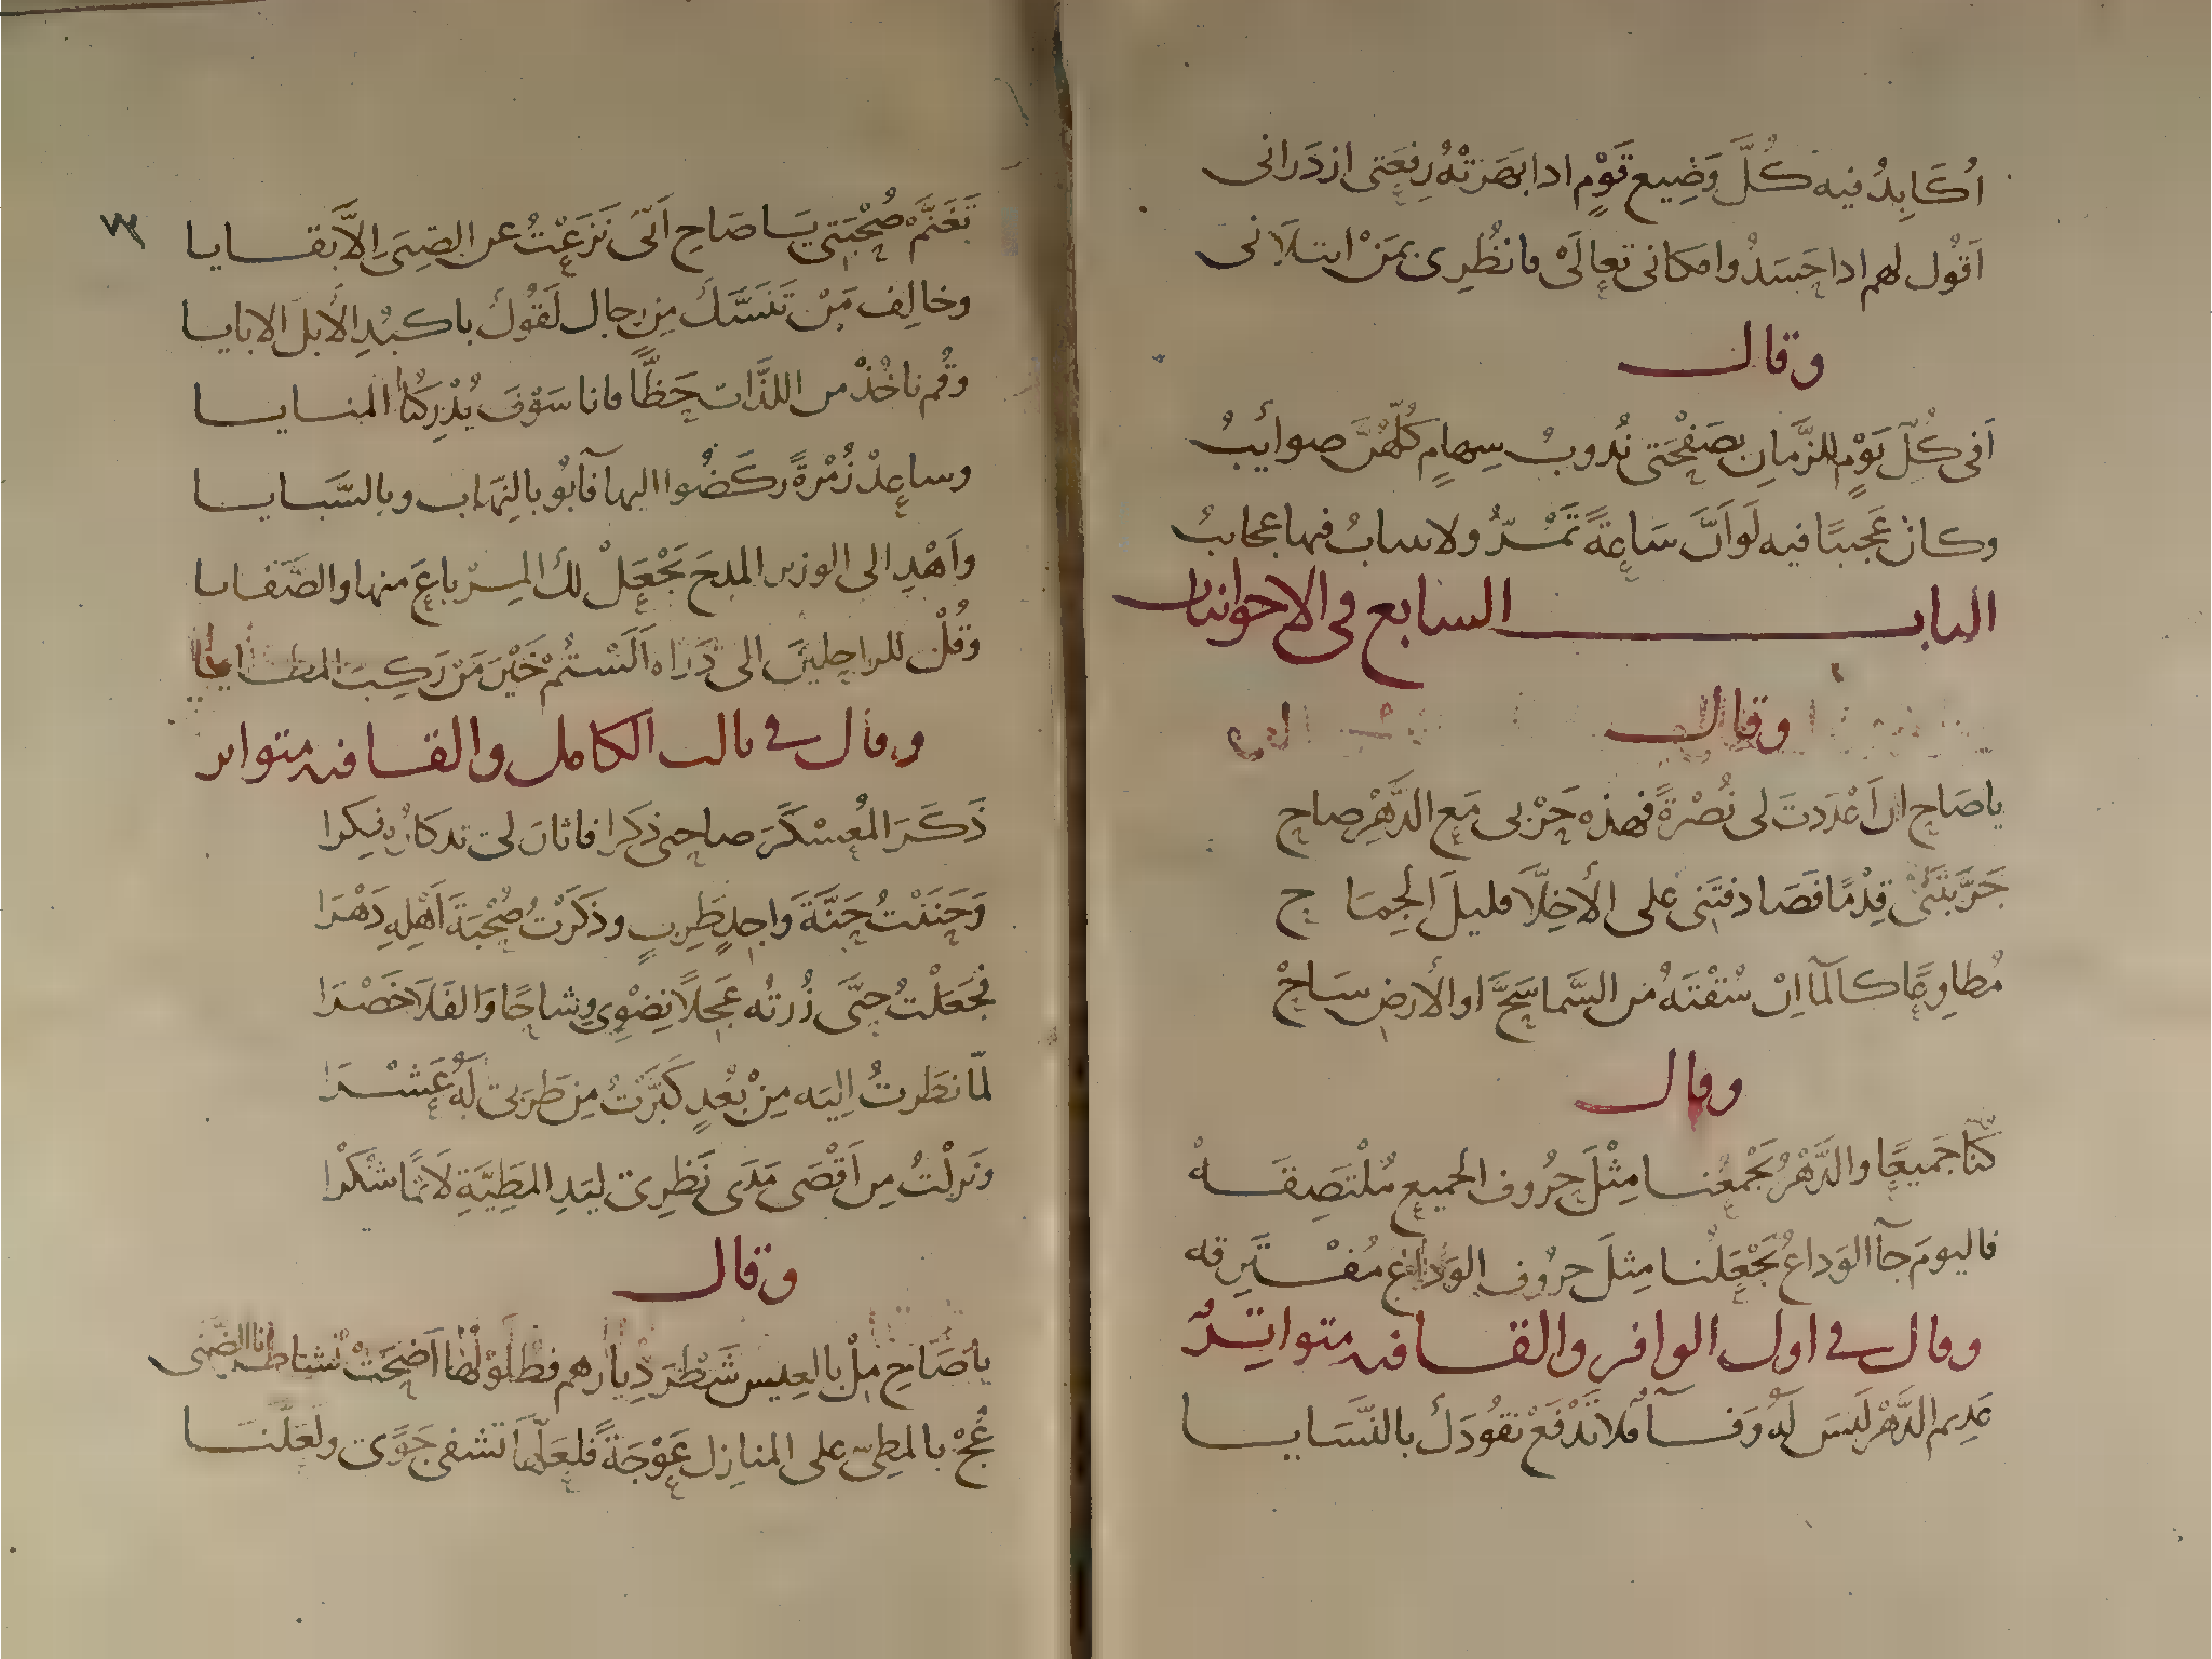 اُكَابِدُ فيه كُلَّ وَضِيع قَوْمٍ ادا بَهَرَتْهُ رِفعَتى ازدَرانى
اَقُول لهم اداحَسَدُوا مكانى تَعالَىْ فانظُرِى بمَنْ ابتلَانى
وقال
اَفى كُلّ يَوْمٍ للزَّمانِ بصَفْحَتى نُدوبُ سِهامٍ كُلّهُنَّ صوائبُ
وكانْ عَجيبًا فيه لَو اَنَّ سَاعةً تَمْـرُّ ولا ساب فيها عجايبُ
الباب السابع فى الاخوانيات
وقال
ياصَاحِ ان اَعْدَدتَ لى نُصْرَةً فهذه حَرْبى مَع الدَّهْرِ صاحِ
جَرَّبْتَنى قِدْمًا فَصَادفتَنى على الأخِلَّا قليلَ الجِمَاح
مُطاوِعًا كالمآ اِنْ سُقْتَهُ من السَّما سَحَّ او الأرضِ سَاحْ
وقال
كُنّا جَميعًا والدَّهْرُ يَجْمعُنا مِثْلَ حرُوف الجميع مُلْتَصِقَهْ
فاليومَ جآ الوَداعُ يَجْعَلُنا مِثلَ حرُوف الوَدَاع مُفْتَرِقه
وقال فى اول الوافر والقافيه متواتِرُ
غَرِيم الدَّهْر لَيسَ لَهُ وَفَآ فلا تَدْفَعْ نقُودَكَ بالنَّسَايا
٧٣
تَغَنَّمْ صُحْبَتِى يَا صَاحِ اَنّى نَزَعْتُ عن الصِّبَى اِلّا بَقَايا
وخالِف مَنْ تَنَسَّكَ مِن رِجالٍ لَقُوكَ باكبُدِ الأبل الابايا
وقُم ناخُذْ من اللذَّات حَظًّا فانا سَوْفَ يُدْرِكُنا المنايا
وساعِدْ زُمْرَةً ركَضُوا اليها فآبُوْ بالنِهَاب وبالسَّبايا
واَهْدِ الى الوزير المدحَ يَجْعَلْ لك المِرْباعَ منها والصَّفايا
وَقُلْ للراحلينَ الى ذَراه اَلَسْتُمْ خَيْرَ مَنْ رَكِبَ المطايا
وقال فى ثالث الكامل والقافيه متواتر
ذَكَرَ المُعسْكَرَ صاحبى ذِكرا فاثارَ لى تذكارُه فِكرا
وَحَنَنْتُ حَنَّةَ واجِدٍ طَرِبٍ وذكَرْتُ صُحْبَةَ اَهْلِهِ دَهْرَا
فجَعَلْتُ حتَّى زُرتُه عَجِلًا نِضْوِى وِشاحًا وَالفَلَا خَصْرَا
لمّا نَظرتُ اِليَه مِنْ بُعْدٍ كَبَّرْتُ مِن طَرَبى لَهُ عَشْرَا
ونَزلْتُ مِن اَقْصَى مَدَى نَظَرِى ليَدِ المَطِيَّةِ لَاثمًا شُكْرا
وقال
ياصَاحِ مِلْ بالعِيس شَطْرَ دِيارهم فطُلُوْلُها اَضْحَتْ
عُجْ بالمطِىّ على المنازِل عَوْجَةً فلعَلَّها تَشفى جَوًى ولَعَلَّنَا